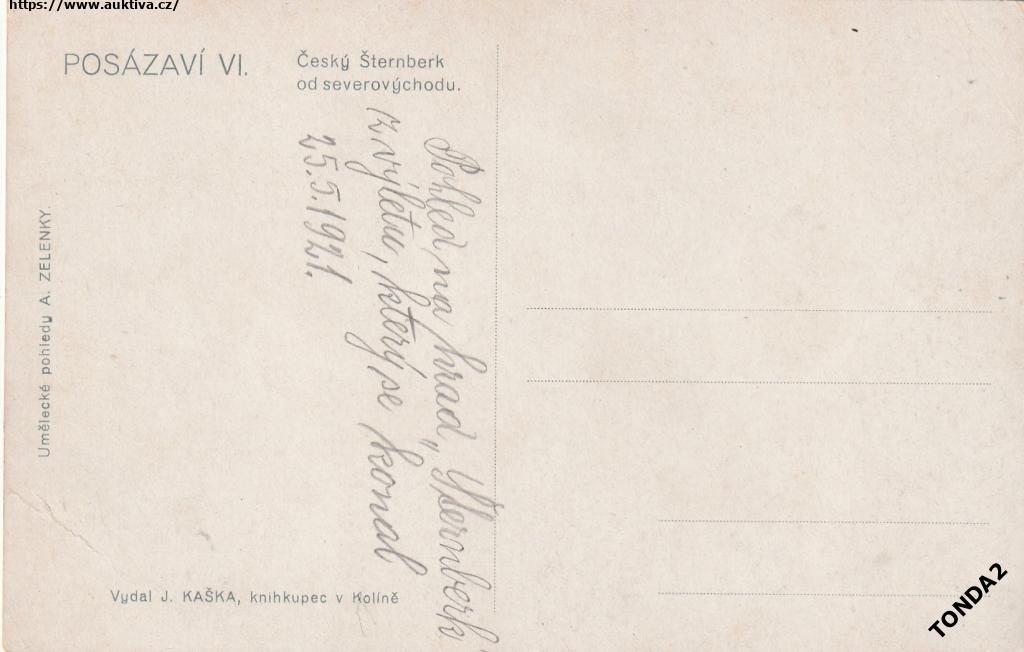 https://www.auktiva.cz/
POSÁZAVÍ VI.
Český Šternberk
od severovýchodu.
Pohled na hrad „Šternberk"
z výletu, který se konal
25.5.1921.
Umělecké pohledy A. ZELENKY.
Vydal J. KAŠKA, knihkupec v Kolíně
TONDA2